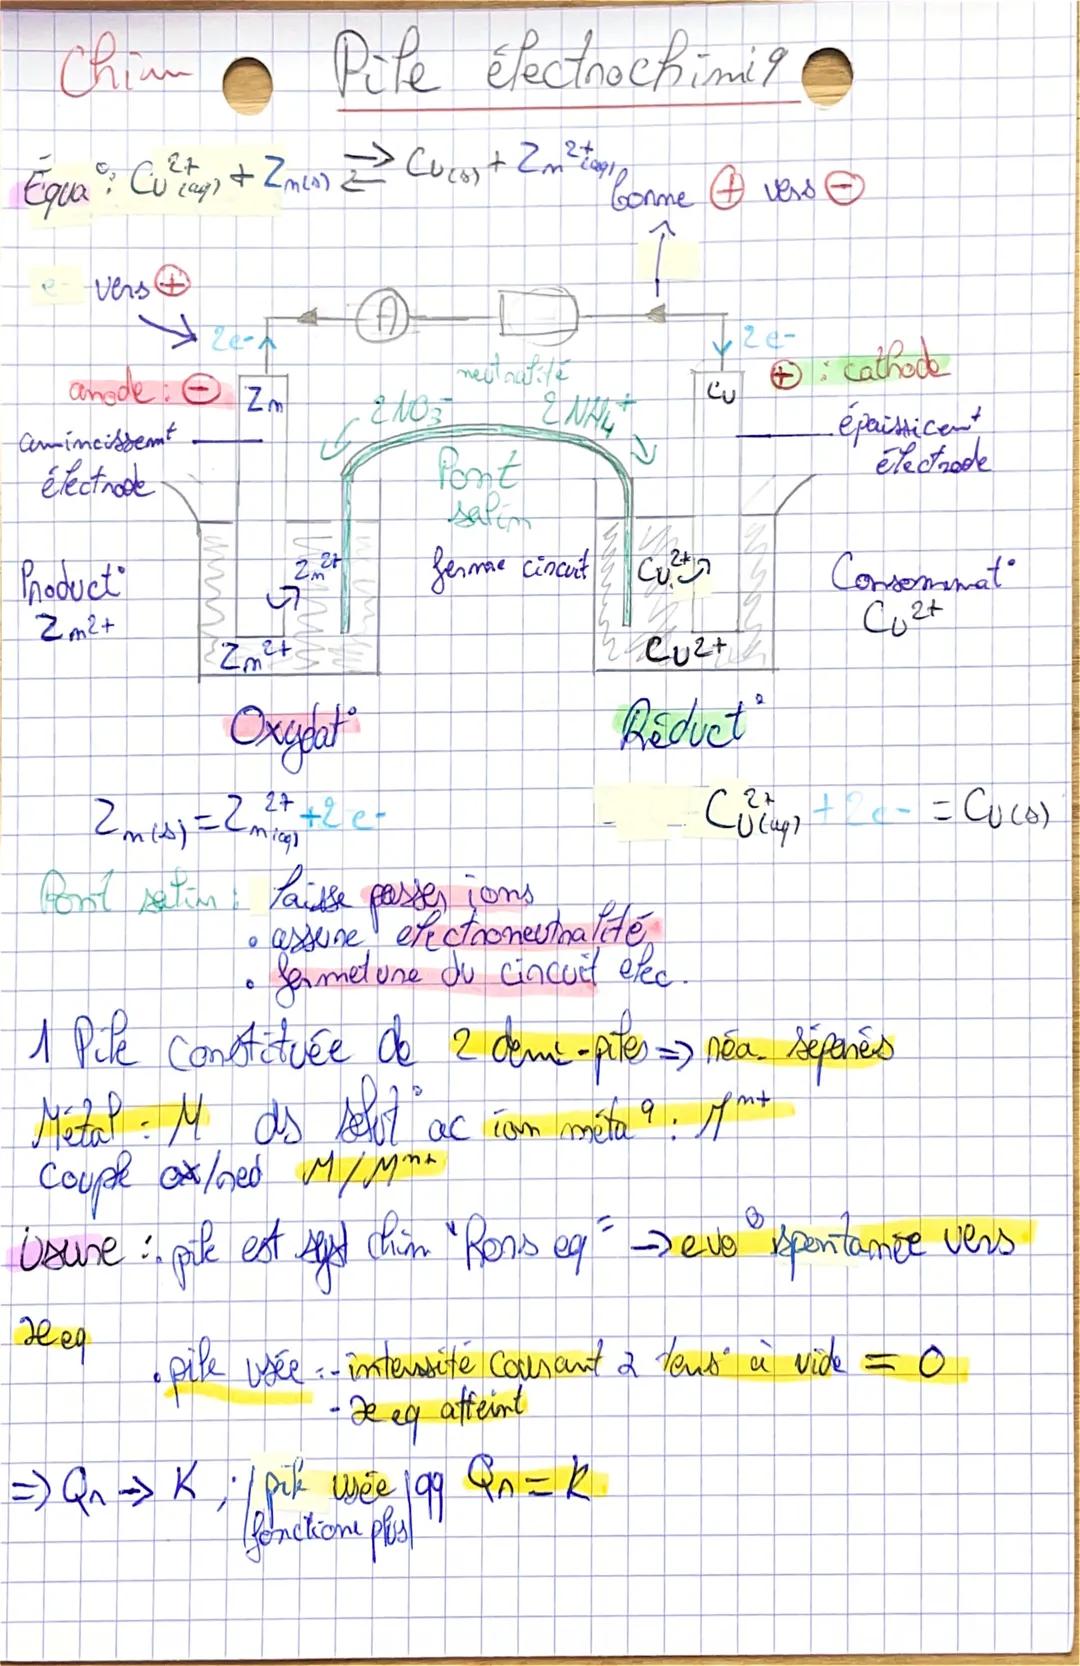 Chim Pile électrochimiq
Équa°: Cu²⁺(aq) + Zn(s) ⇄ Cu(s) + Zn²⁺(aq)
borne ⊕ vers ⊖
e- vers ⊕
A
2e- 2e-
neutralité
anode : ⊖ Zn Cu ⊕ : cathode
2 NO₃⁻ 2 NH₄⁺
amincissemt épaississemt
électrode électrode
Pont
salin
Product° Zn²⁺ ferme circuit Cu²⁺ Consommat°
Zn²⁺ Cu²⁺
Zn²⁺ Cu²⁺
Oxydat° Réduct°
Zn(s) = Zn²⁺(aq) + 2e- Cu²⁺(aq) + 2e- = Cu(s)
Pont salin : laisse passer ions
• assure electroneutralité
• fermeture du circuit elec.
1 Pile constituée de 2 demi-piles => réa. séparés
Métal : M ds solut° ac ion métaq : Mⁿ⁺
Couple ox/red M/Mⁿ⁺
Usure : • pile est syst chim "hors eq" → evo° spontanée vers
xeq
• pile usée : - intensité courant & tens° à vide = 0
- xeq atteint
=> Qr → K ; pile usée qq Qr = K
fonctione plus